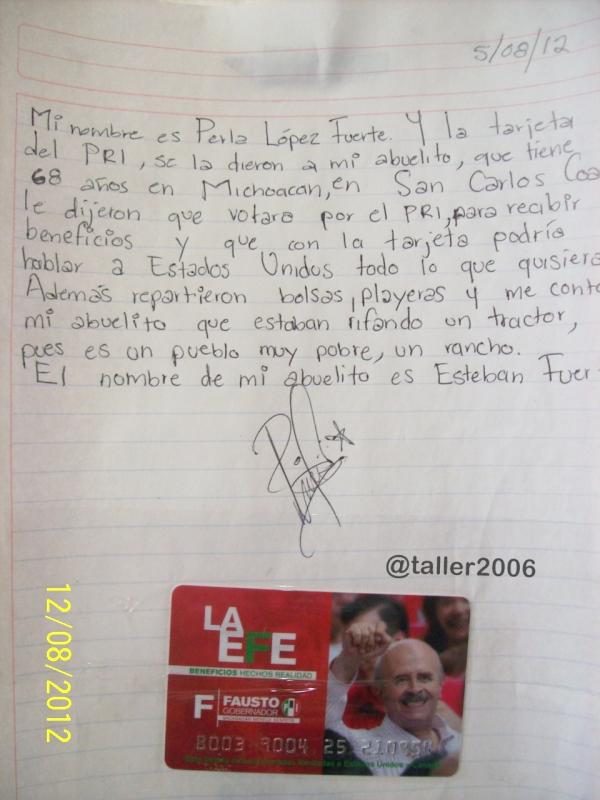 5/08/12
Mi nombre es Perla López Fuerte. Y la tarjeta
del PRI, se la dieron a mi abuelito, que tiene
68 años en Michoacan, en San Carlos Coa
le dijeron que votara por el PRI, para recibir
beneficios y que con la tarjeta podría
hablar a Estados Unidos todo lo que quisiera
Además repartieron bolsas, playeras y me conto
mi abuelito que estaban rifando un tractor,
pues es un pueblo muy pobre, un rancho.
El nombre de mi abuelito es Esteban Fuer
@taller2006
12/08/2012
LA
EFE
BENEFICIOS HECHOS REALIDAD
F FAUSTO
GOBERNADOR
PRI
8003 9004 25